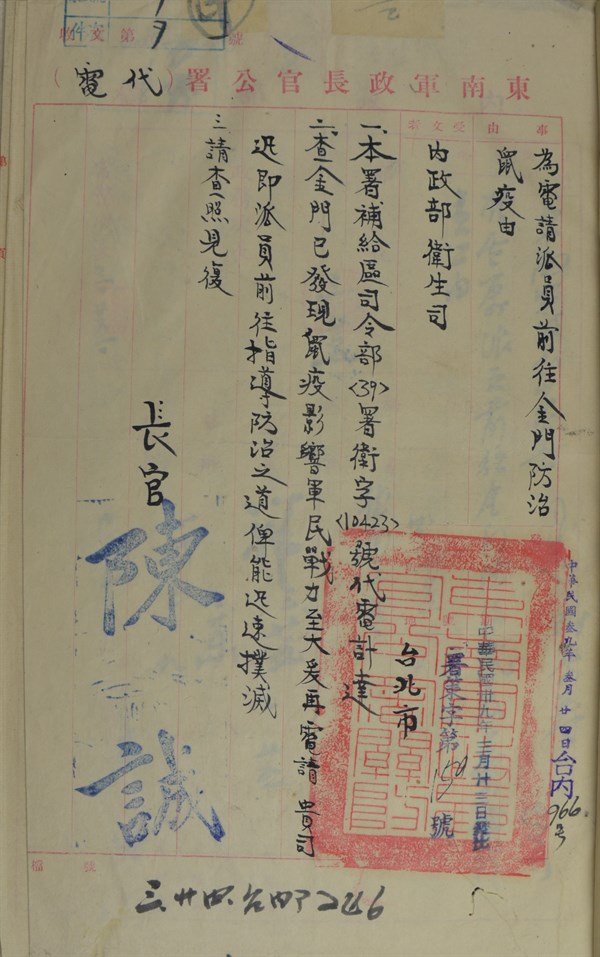 東南軍政長官公署（代電）
事由
為電請派員前往金門防治
鼠疫由
受文者
內政部衛生司
一、本署補給區司令部<39>署衛字<10423>號代電計達
二、查金門已發現鼠疫影響軍民戰力至大爰再電請 貴司
迅即派員前往指導防治之道俾能迅速撲滅
三、請查照見復
長官
陳誠
台北市
中華民國卅九年三月廿三日發出
署東字第
號
中華民國叁九年叁月廿四日台內
966号